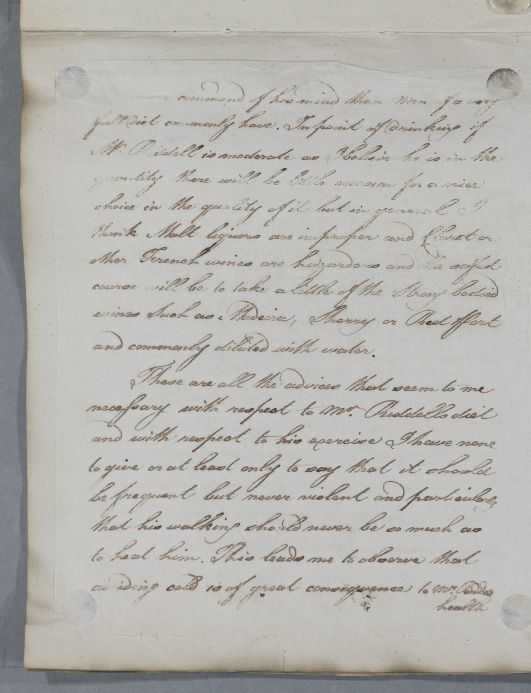 command of his mind than men of a very
full diet commonly have. In point of drinking if
Mr. Riddell is moderate as I believe he is in the
quantity there will be little occasion for a nice
choice in the quality of it but in general I
think Malt liquors are improper and Claret or
other French wines are hazardous and the safest
course will be to take a little of the Strong bodied
wines Such as Madeira, Sherry or Red Port
and commonly diluted with water.
These are all the advices that seem to me
necessary with respect to Mr. Riddells diet
and with respect to his exercise I have none
to give or at least only to say that it should
be frequent but never violent and particularly
that his walking should never be so much as
to heat him. This leads me to observe that
avoiding cold is of great consequence to Mr.
health